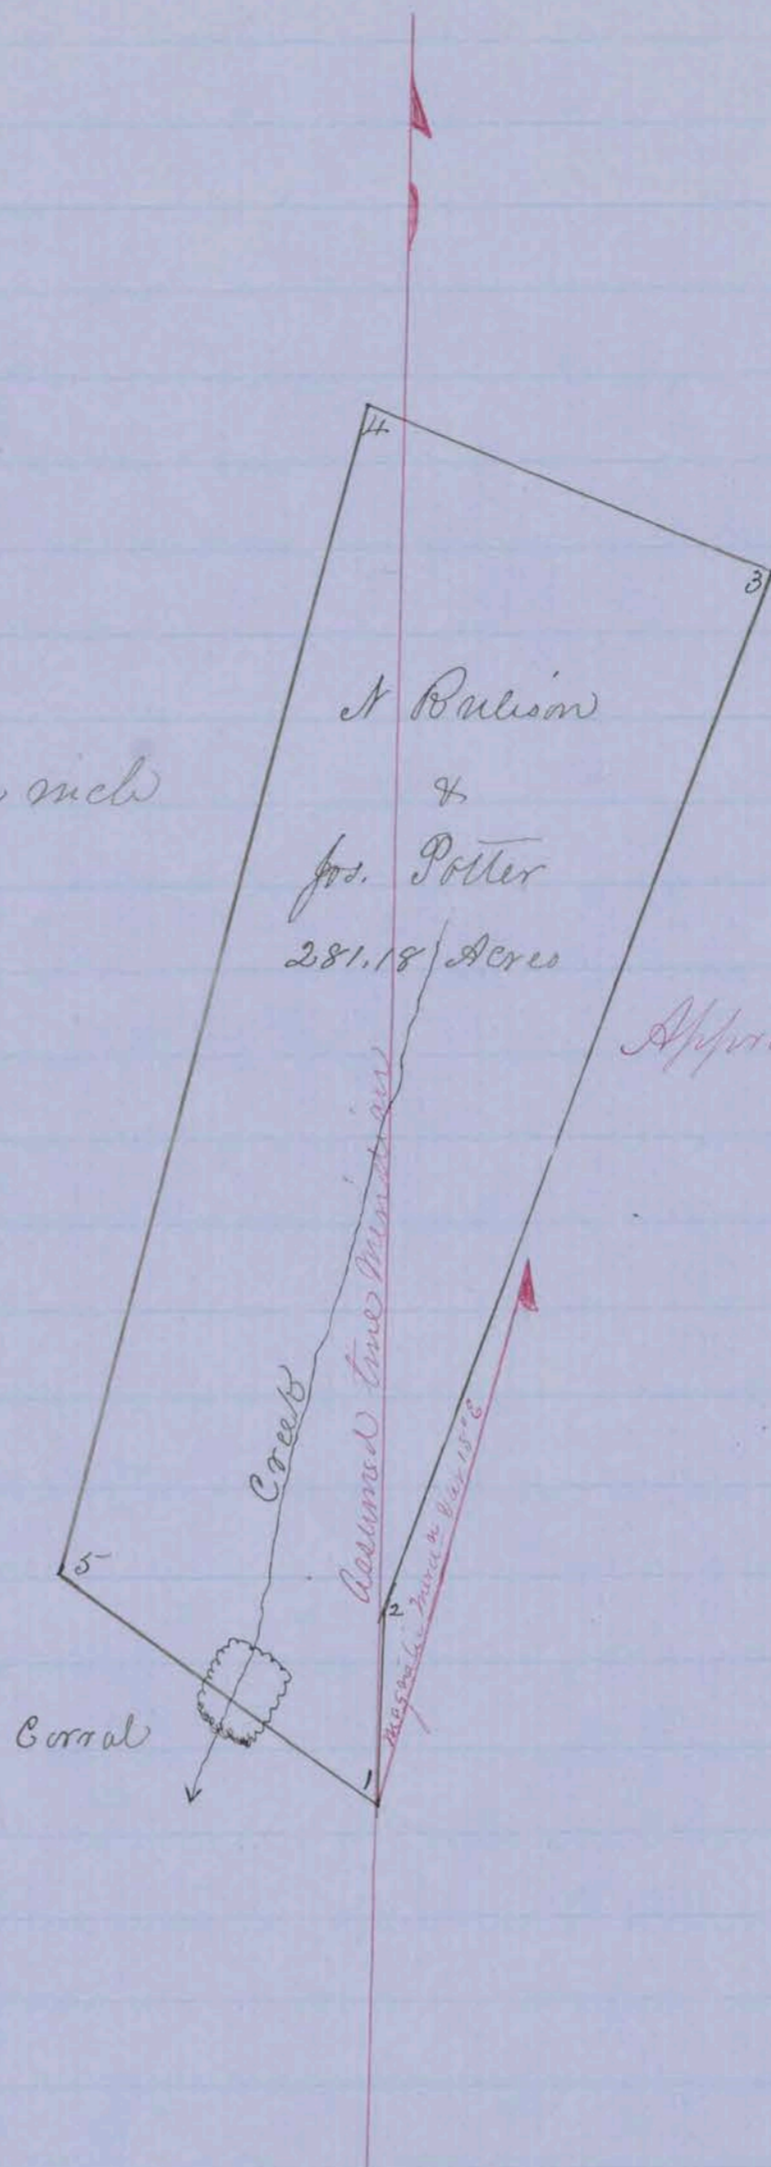 4
3
N Rulison
&
inch
Jos. Potter
281.18 Acres
Appr
Assumed true Meridian
Creek
Magnetic Var 15° E
5
2
Corral
1